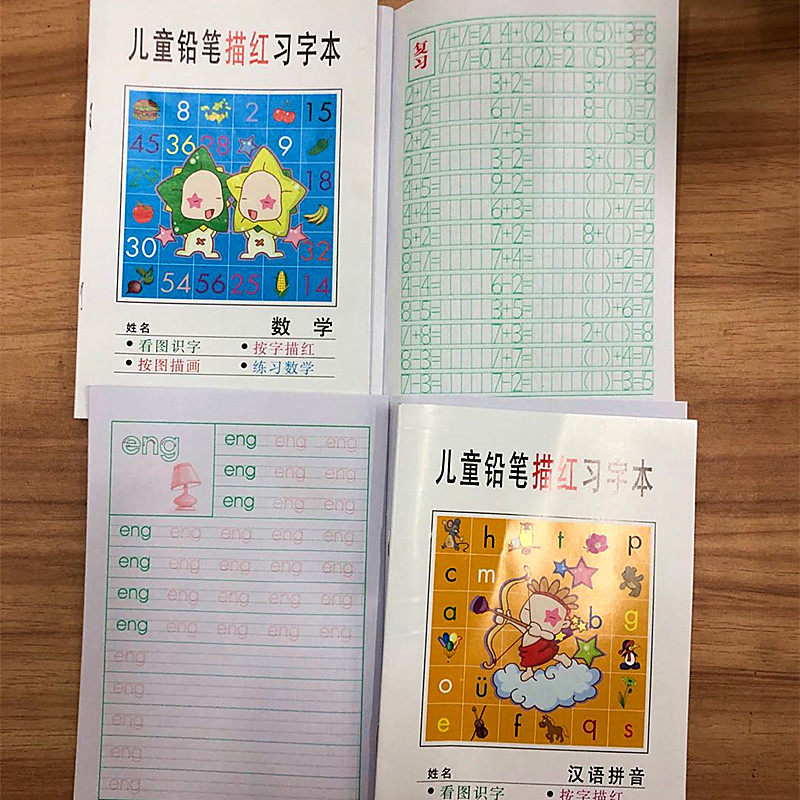 儿童铅笔描红习字本
8 2 15
45 36 28 9
29 18
30 32
54 56 25 14
姓名 数学
•看图识字 •按字描红
•按图描画 •练习数学
复习
1+1=2 4+(2)=6 (5)+3=8
1-1=0 4-(2)=2 (5)-3=2
2+1= 3+2= ( )+3=6
2+2= 1+5= ( )-5=0
2-1= 3-2=
4+5= 9-2= ( )-7=1
4+4= 6+3= ( )+1=4
7+2= 8+( )=9
8-1= ( )+2=7
3+5=
1+8= 2+( )=8
1+7= ( )+4=7
eng eng eng eng
eng eng eng
eng eng eng
eng eng eng eng eng
eng eng eng eng eng
eng eng eng eng eng
eng eng eng eng eng
eng
eng
eng
eng
eng
儿童铅笔描红习字本
h t p
c m
a b g
o ü
e f q s
姓名 汉语拼音
•看图识字 •按字描红